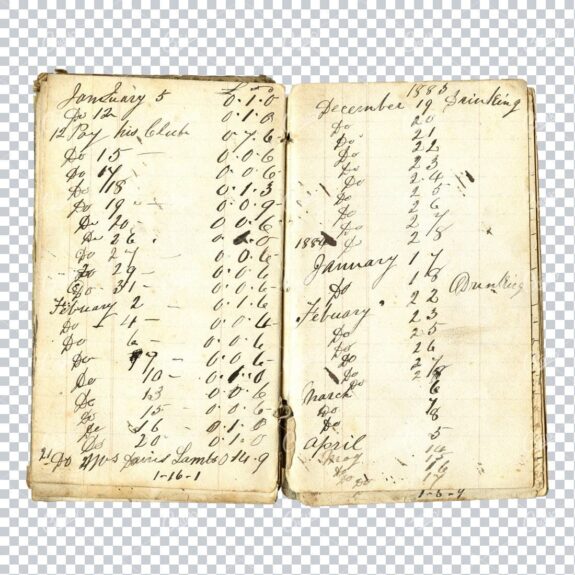 January 5 0.1.0
Do 12 0.1.0
12 Pay his Club 0.7.6
Do 15 - 0.0.6
Do 17 - 0.0.6
Do 18 0.1.3
Do 19 - 0.0.9
Do 20 - 0.0.6
Do 26
Do 27 - 0.0.6
Do 29 - 0.0.6
Do 31 - 0.0.6
Febuary 2 - 0.1.6
Do - 4 - 0.0.6
Do 6 - 0.0.6
Do 9 - 0.0.6
Do 10 - 0.1.0
Do 13 0.0.6
Do 15 - 0.0.6
Do 16 - 0.1.0
Do 20 - 0.1.0
21 Do Lambs 0 14.9
1-16-1
1883
December 19 Drinking
Do 20
Do 21
Do 22
Do 23
Do 24
Do 25
Do 26
Do 27
1884 Do 28
January 17
Do 18 Drunking
Febuary 22
Do 23
Do 25
Do 26
Do 27
March 6
Do 7
Do 8
April 5
14
Do 16
Do 17